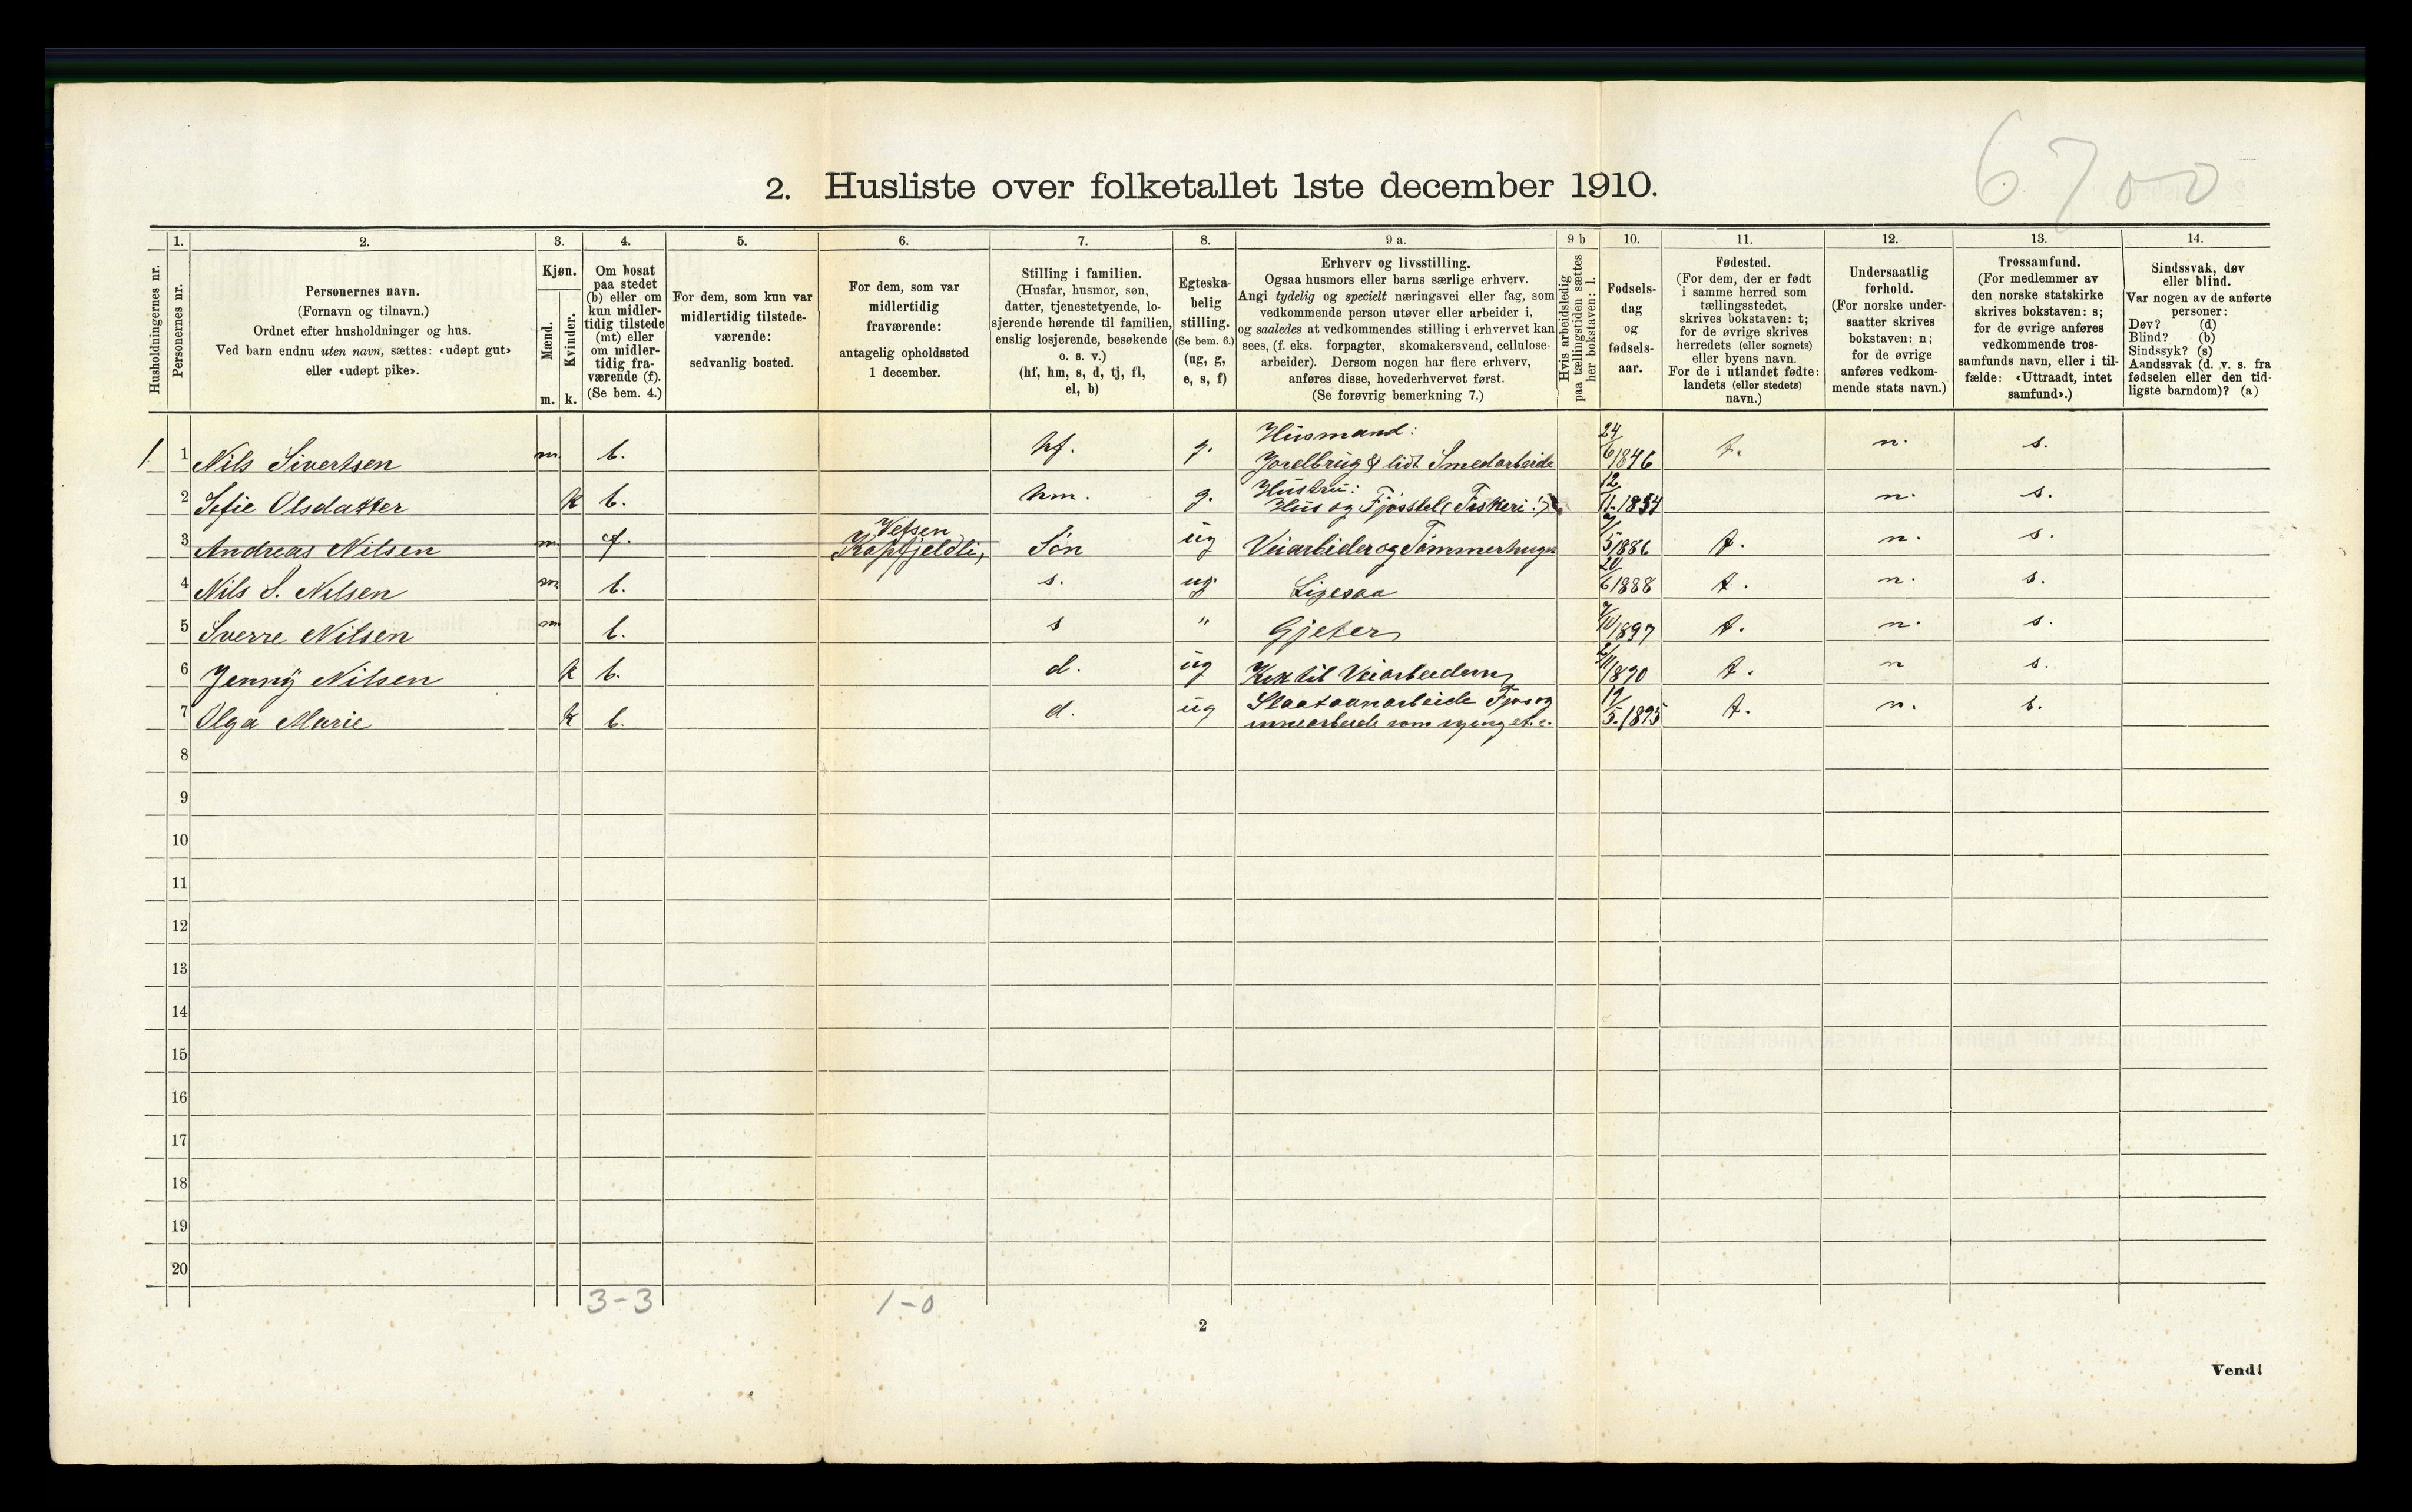 6700
2. Husliste over folketallet 1ste december 1910.
1. 2. 3. 4. 5. 6. 7. 8. 9 a. 9 b 10. 11. 12. 13. 14.
Husholdningernes nr.
Personernes nr.
Personernes navn.
(Fornavn og tilnavn.)
Ordnet efter husholdninger og hus.
Ved barn endnu uten navn, sættes: «udøpt gut»
eller «udøpt pike».
Kjøn.
Mænd.
Kvinder.
m. k.
Om bosat
paa stedet
(b) eller om
kun midler-
tidig tilstede
(mt) eller
om midler-
tidig fra-
værende (f).
(Se bem. 4.)
For dem, som kun var
midlertidig tilstede-
værende:
sedvanlig bosted.
For dem, som var
midlertidig
fraværende:
antagelig opholdssted
1 december.
Stilling i familien.
(Husfar, husmor, søn,
datter, tjenestetyende, lo-
sjerende hørende til familien,
enslig losjerende, besøkende
o. s. v.)
(hf, hm, s, d, tj, fl,
el, b)
Egteska-
belig
stilling.
(Se bem. 6.)
(ug, g,
e, s, f)
Erhverv og livsstilling.
Ogsaa husmors eller barns særlige erhverv.
Angi tydelig og specielt næringsvei eller fag, som
vedkommende person utøver eller arbeider i,
og saaledes at vedkommendes stilling i erhvervet kan
sees, (f. eks. forpagter, skomakersvend, cellulose-
arbeider). Dersom nogen har flere erhverv,
anføres disse, hovederhvervet først.
(Se forøvrig bemerkning 7.)
Hvis arbeidsledig
paa tællingstiden sættes
her bokstaven: l.
Fødsels-
dag
og
fødsels-
aar.
Fødested.
(For dem, der er født
i samme herred som
tællingsstedet,
skrives bokstaven: t;
for de øvrige skrives
herredets (eller sognets)
eller byens navn.
For de i utlandet fødte:
landets (eller stedets)
navn.)
Undersaatlig
forhold.
(For norske under-
saatter skrives
bokstaven: n;
for de øvrige
anføres vedkom-
mende stats navn.)
Trossamfund.
(For medlemmer av
den norske statskirke
skrives bokstaven: s;
for de øvrige anføres
vedkommende tros-
samfunds navn, eller i til-
fælde: «Uttraadt, intet
samfund».)
Sindssvak, døv
eller blind.
Var nogen av de anførte
personer:
Døv? (d)
Blind? (b)
Sindssyk? (s)
Aandssvak (d. v. s. fra
fødselen eller den tid-
ligste barndom)? (a)
1 1 Nils Sivertsen m. b. hf. g. Husmand: Jordbrug & lidt Smedarbeide 24/6 1846 t. n. s.
2 Sofie Olsdatter k b. hm. g. Hustru: Hus og Fjøsstel (Fiskeri!) 12/11-1854 n. s.
3 Andreas Nilsen m. f. Vefsen Kapfjeldli, Søn ug Veiarbeider og Tømmerhuger /5 1886 t. n. s.
4 Nils S. Nilsen m b. s. ug. Ligesaa 20/6 1888 t. n. s.
5 Sverre Nilsen m b. s " Gjeter 1897 t. n. s.
6 Jenny Nilsen k b. d. ug Kok til Veiarbeidern /11 1890 t. n s.
7 Olga Marie k b. d. ug Slaataanarbeide Fjøs og innearbeide som sying et.c. 19/5.1895 t. n. s.
8
9
10
11
12
13
14
15
16
17
18
19
20
3-3 1-0
2
Vend!